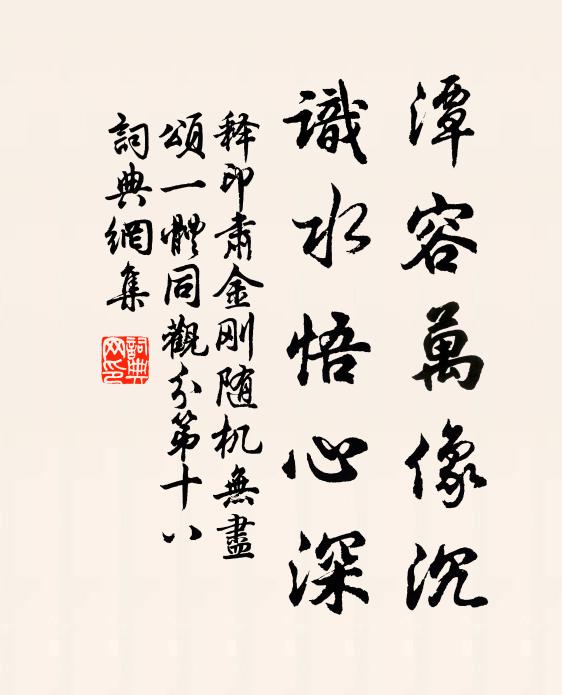 潭容萬像沉
識水悟心深
释印肃金刚随机無盡
頌一體同觀分第十八
詞典網集
詞典網印